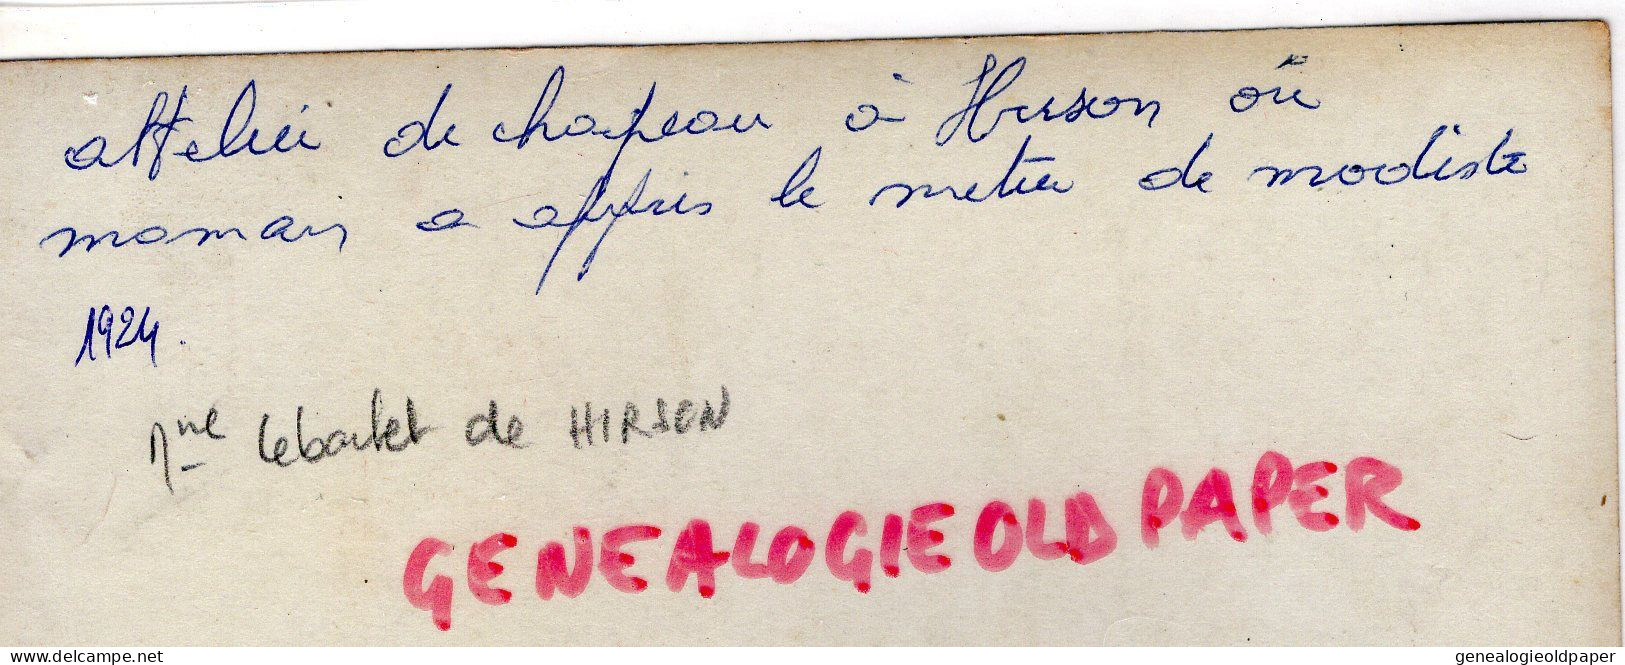 attelier de chapeau à Hirson où
maman a appris le metier de modiste
1924.
de HIRSON
GENEALOGIE OLD PAPER
www.delcampe.net
genealogieoldpaper